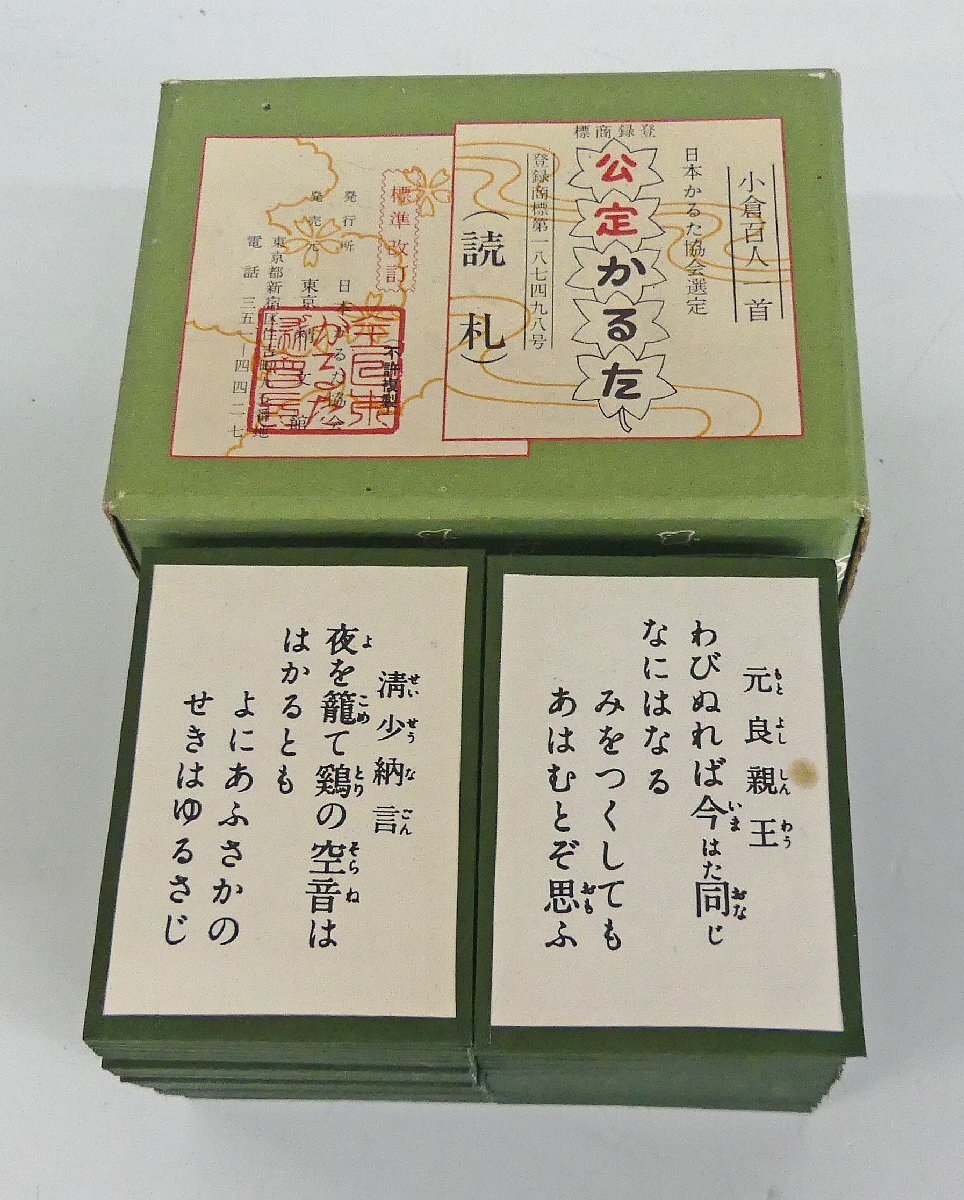 小倉百人一首
日本かるた協会選定
登録商標
公定かるた
登録商標第一八七四九八号
(読札)
標準改訂
発行所 日本かるた協会
発売元 東京
東京都新宿区住吉町
電話 三五一―四四二七
不許複製
元良親王
もとよししんわう
わびぬれば今はた同じ
いま おな
なにはなる
みをつくしても
あはむとぞ思ふ
おも
清少納言
せいせうなごん
夜を籠て鶏の空音は
よ こめ とり そらね
はかるとも
よにあふさかの
せきはゆるさじ